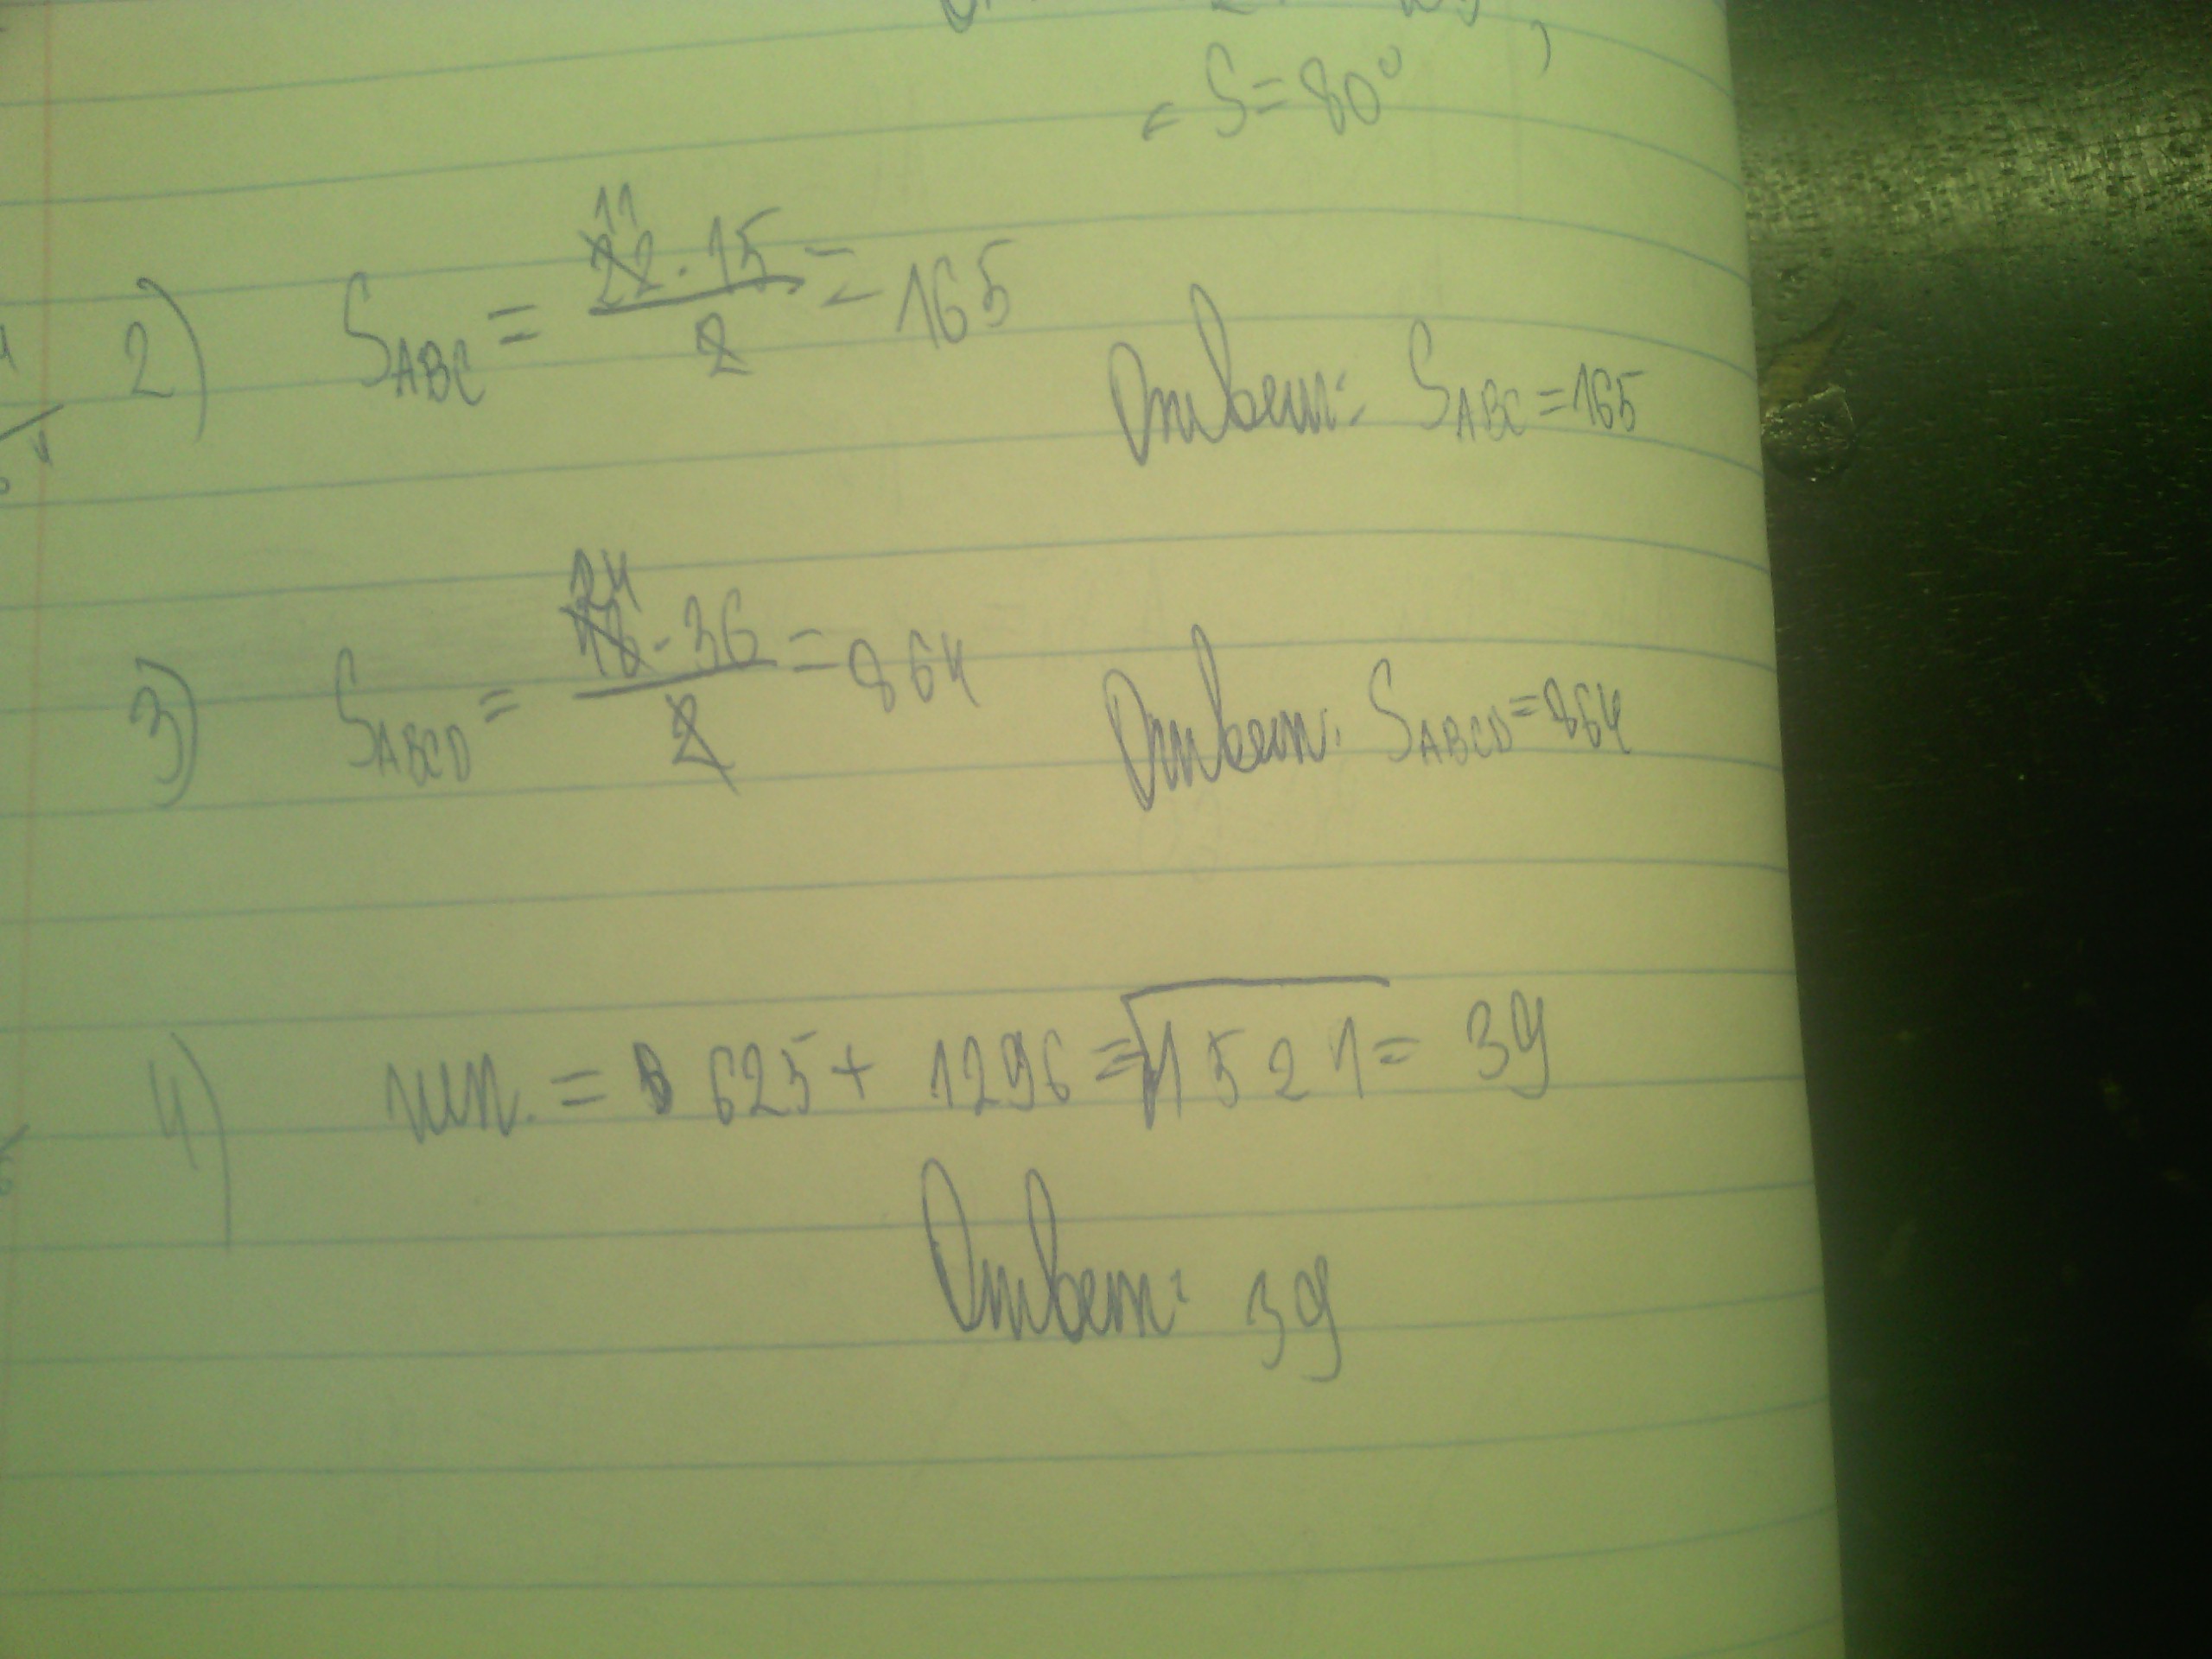 S=80°
2) S_ABC = (22·15)/2 = 165
11
Ответ: S_ABC=165
3) S_ABCD = (48·36)/2 = 864
24
Ответ: S_ABCD=864
4) = 625+ 1296 = √1521 = 39
Ответ: 39